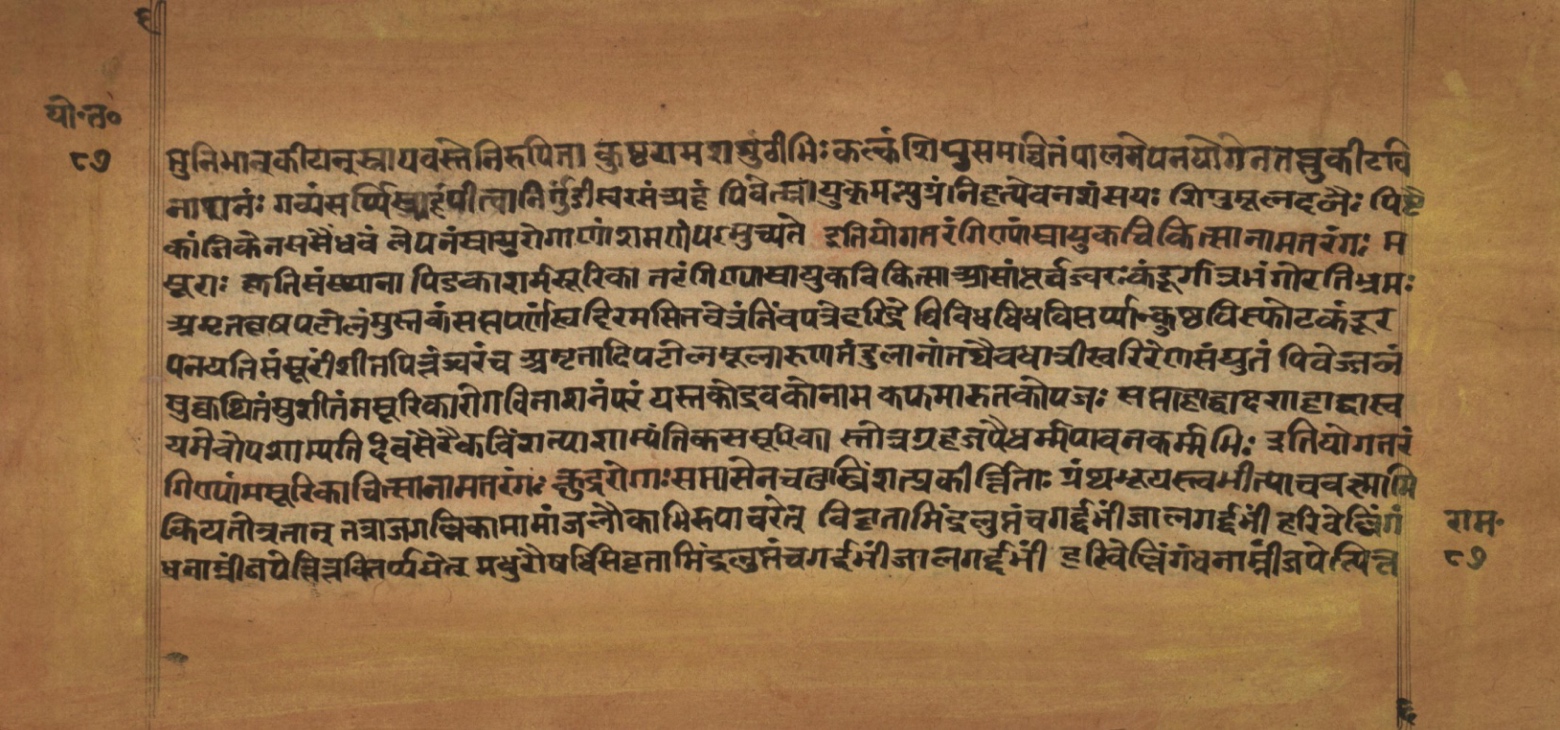 यो॰त॰
८७
मुनिभानुकीयनुस्नायवस्तेनिरुपिता कुष्ठरामराशुंठीभिः कल्कं शिग्रुसमन्वितं पानलेपनयोगेनतस्नुकीटवि
नाशनंः गव्यंसर्पिस्त्र्यहंपीत्वानिर्गुंडीस्वरसंत्र्यहं पिवेत्स्नायुकमत्युग्रंनिहत्येवनसंसयः शिग्रुमूलदलैः पिष्टै
कांजिकेनससैंधवं लेपनंस्नायुरोगाणांशमणंपरमुच्यते इतियोगतरंगिण्यांस्नायुकचिकित्सानामतरंगः म
सूराः कृतिसंस्थाना पिडकाशर्मसूरिका तरंगिण्यास्नायुकचिकित्सा आसांपूर्वज्वरःकंडूर्गात्रभंगोरतिभ्रमः
अमृतवृषपटोलंमुस्तकंसप्तपर्णंखदिरमसितवेत्रंनिंवपत्रेहरिद्रे विविधविधविसर्प्पान्कुष्ठविस्फोटकंडूर
पनयतिमंसूरींशीतपित्तंज्वरंच अमृतादिपटोलमूलारुणतंदुलानांतथैवधात्रीखदिरेणसंयुतं पिवेज्जलं
सुक्वथितंसुशीतंमसूरिकारोगविनाशनंपरं यस्तकोद्रवकोनाम कफमारुतकोपजः सप्ताहाद्वादशाहाद्वास्व
यमेवोपशाम्यति दिवसैरैकविंशत्याशाम्यंतिकसमूरिका स्तोत्रग्रहजपैधर्म्मपावनकर्म्मभिः इतियोगतरं
गिण्यांमसूरिकाचित्सानामतरंगः क्षुद्ररोगाःसमासेनचत्वारिंशत्प्रकीर्त्तिताः ग्रंथभूयस्त्वभीत्याचवक्ष्यामि
कियतोत्रतान् तत्राजगल्लिकामामांजलौकाभिरुपाचरेत् विवृतामिंद्रलुप्तंचगर्द्दभींजालगर्द्दभीं हरिवेल्लिंगं
धनाम्नींजपेत्पित्तविसर्प्पयेत् मधुरौषधिसिद्दतामिंद्रलुप्तंचगर्द्दभींजालगर्द्दभीं हरिवेल्लिंगंधनाम्नींजपेत्पित्त
राम॰
८७